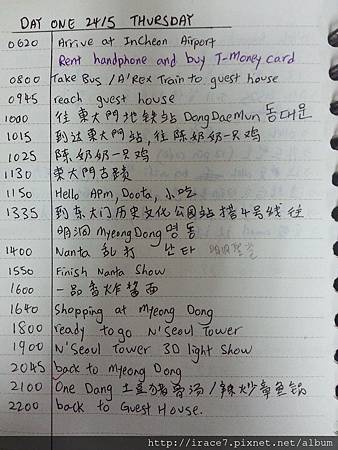 DAY ONE 24/5 THURSDAY
0620 Arrive at InCheon Airport
Rent handphone and buy T-Money card
0800 Take Bus / A'Rex Train to guest house
0945 reach guest house
1000 往東大門地铁站 DongDaeMun 동대문
1015 到达東大門站，往陈奶奶一只鸡
1025 陈奶奶一只鸡
1130 東大門古蹟
1150 Hello APM, Doota, 小吃
1335 到东大门历史文化公园站搭4号线往
明洞 MyeongDong 명동
1400 Nanta 乱打 난타
1550 Finish Nanta Show
1600 一品香炸酱面
1640 Shopping at Myeong Dong
1800 ready to go N'Seoul Tower
1900 N'Seoul Tower 3D light show
2045 back to Myeong Dong
2100 One Dang 土豆猪骨汤/辣炒章鱼锅
2200 back to Guest House.
http://irace7.pixnet.net/album